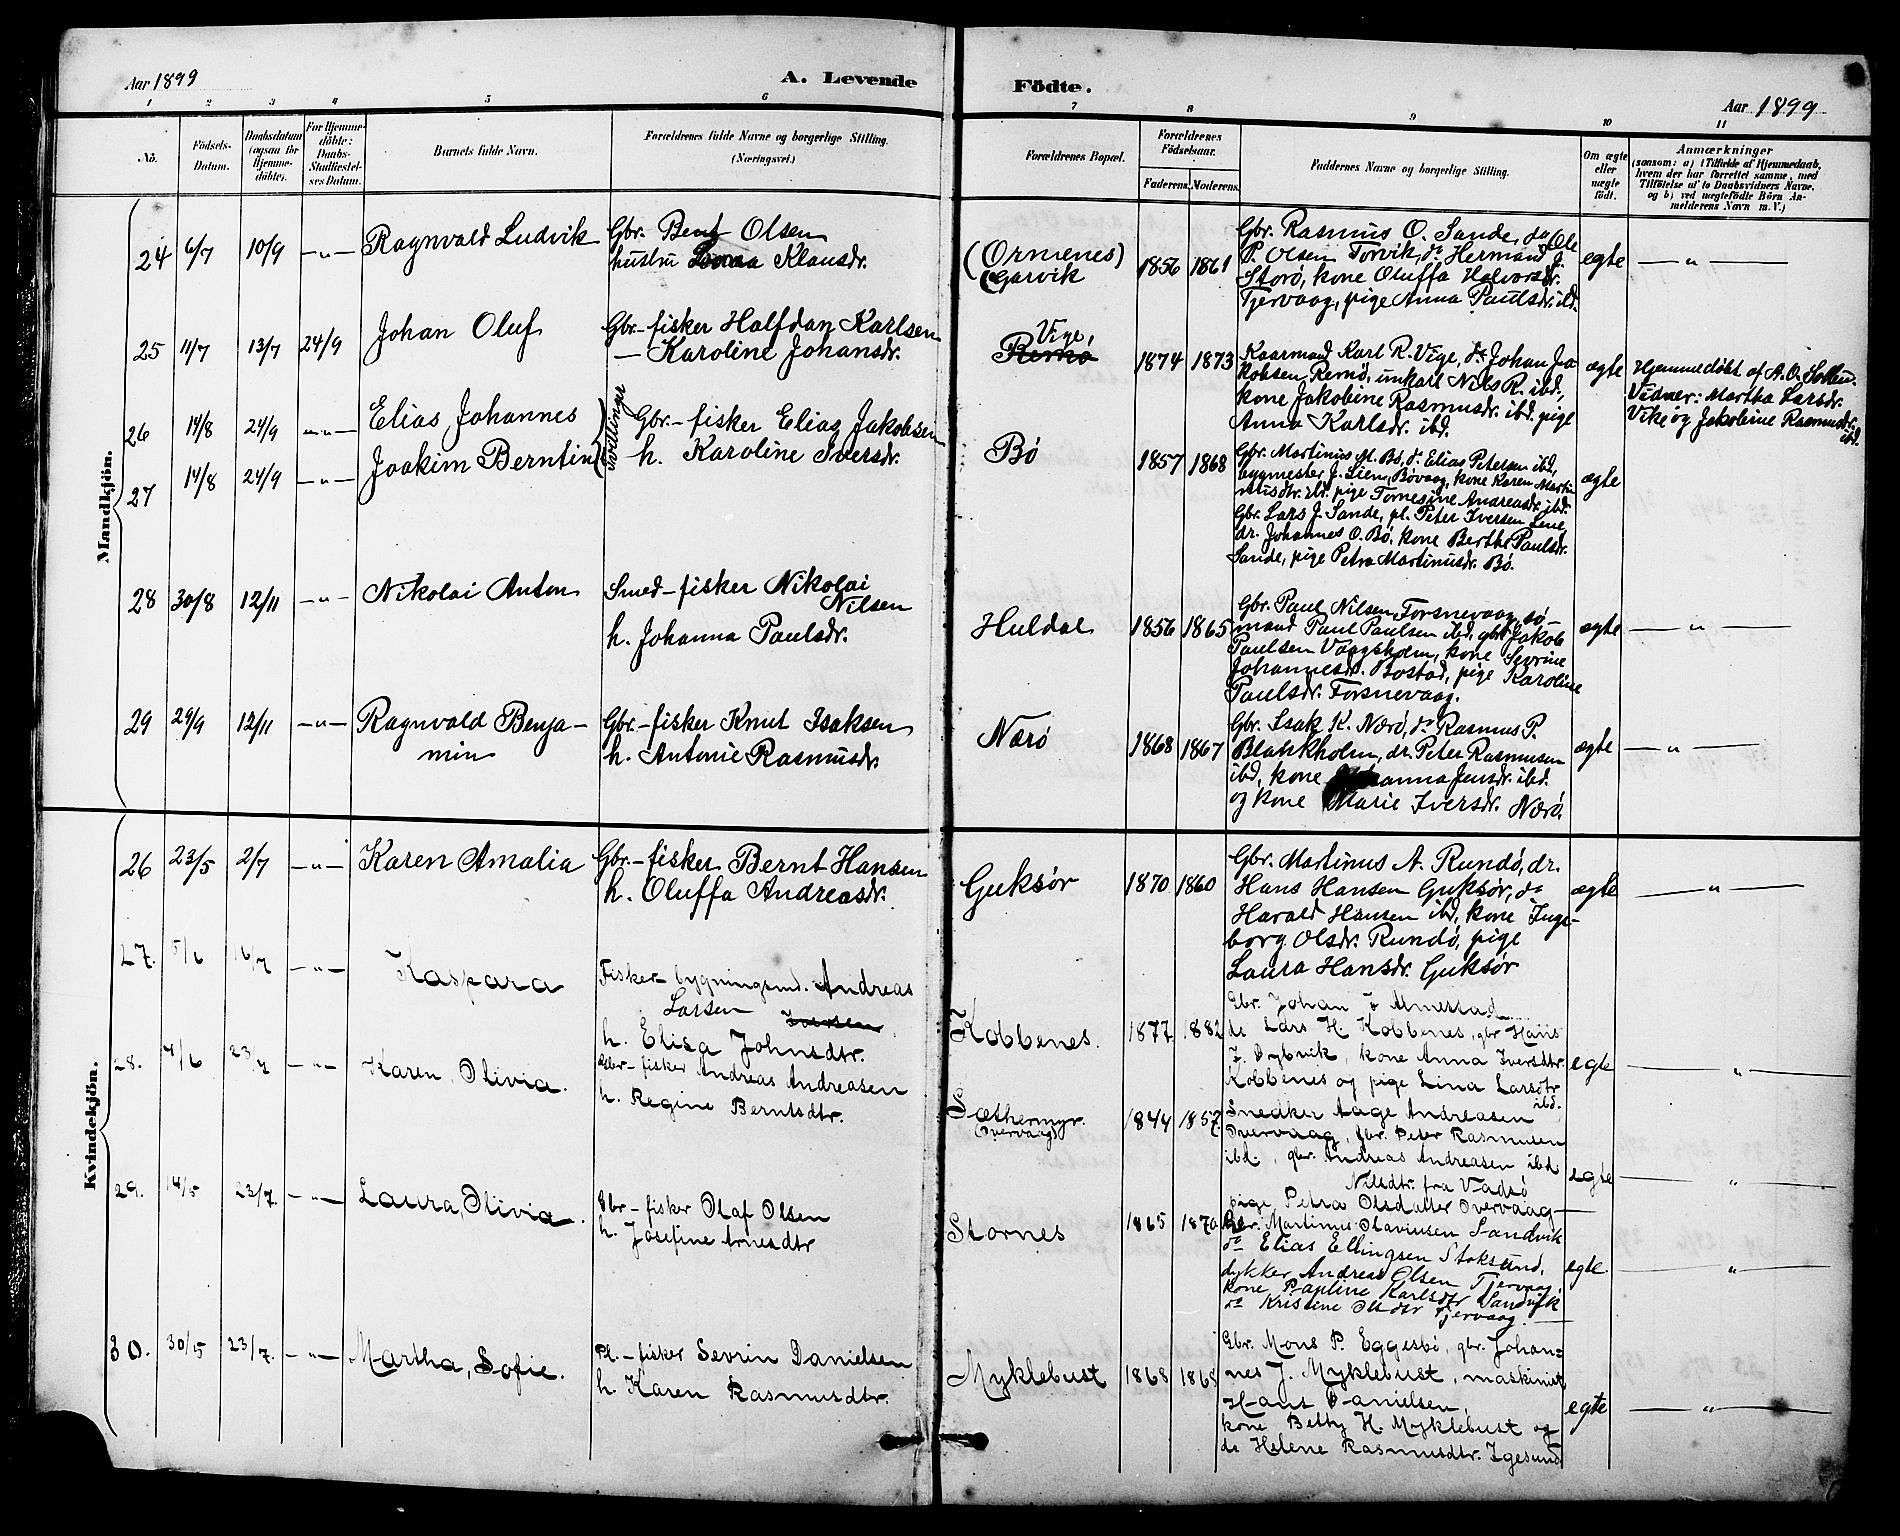 Aar 1899
A. Levende
Födte.
Aar 1899
1 2 3 4 5 6 7 8 9 10 11
No.
Födsels-
Datum.
Daabsdatum
(ogsaa for
Hjemme-
döbte).
For Hjemme-
döbte:
Daabs-
Stadfæstel-
ses Datum.
Barnets fulde Navn.
Forældrenes fulde Navne og borgerlige Stilling.
(Næringsvei.)
Forældrenes Bopæl.
Forældrenes
Födselsaar.
Faderens. Moderens.
Faddernes Navne og borgerlige Stilling.
Om ægte
eller
uægte
födt.
Anmærkninger
(saasom: a) i Tilfælde af Hjemmedaab,
hvem der har forrettet samme, med
Tilföielse af to Daabsvidners Navne,
og b) ved uægtefödte Börn An-
melderens Navn m. V.)
Mandkjön.
24 6/7 10/9 —„— Ragnvald Ludvik
Gbr. Bent Olsen
hustru Klausdr.
(Ormenes)
Garvik
1856 1861
Gbr. Rasmus O. Sande, do Ole
P. Olsen Torvik, do Hermand J.
Storø, kone Oluffa Halvorsdr.
Tjervaag, pige Anna Paulsdr. ibd.
egte —„—
25 11/7 13/7 24/9 Johan Oluf
Gbr.-fisker Halfdan Karlsen
— Karoline Johansdr.
Vige,
Remø
1874 1873
Kaarmand Karl R. Vige, do Johan Ja
kobsen, Remø, unkarl Nils R. ibd.,
kone Jakobine Rasmusdr. ibd. pige
Anna Karlsdr. ibd.
ægte
Hjemmedøbt af A. O.
Vidner: Martha Larsdr.
Vike og Jakobine Rasmusdr.
ibd.
26 14/8 24/9 —„— Elias Johannes
27 14/8 24/9 —„— Joakim Berntin
Tvillinger
Gbr.-fisker Elias Jakobsen
h. Karoline Iversdr.
Bø
1857 1868
Gbr. Martinus M. Bø, do Elias Petersen ibd,
bygmester J. Lien, Bøvaag, kone Karen Marti
nusdtr. ibd. pige Tomesine Andreasdr. ibd.
Gbr. Lars J. Sande, pl. Peter Iversen Lene,
dr. Johannes O. Bø, kone Berthe Paulsdr.
Sande, pige Petra Martinusdr. Bø.
ægte
28 30/8 12/11 —„— Nikolai Anton
Smed-fisker Nikolai
Nilsen
h. Johanna Paulsdr.
Huldal
1856 1865
Gbr. Paul Nilsen, Torsnevaag, sø-
mand Paul Paulsen ibd, gbr. Jakob
Paulsen Vaagsholm, kone Sevrine
Johannesdr. Bostad, pige Karoline
Paulsdr. Torsnevaag.
ægte —„—
29 29/9 12/11 —„— Ragnvald Benja-
min
Gbr.-fisker Knut Isaksen
h. Antonie Rasmusdr.
Nærø
1868 1867
Gbr. Isak K. Nærø, do Rasmus P.
Blankholm, dr. Peter Rasmusen
ibd, kone Johanna Jensdr. ibd.
og kone Marie Iversdr. Nærø.
ægte —„—
Kvindekjön.
26 23/5 2/7 —„— Karen Amalia
Gbr.-fisker Bernt Hansen
h. Oluffa Andreasdr.
Guksør
1870 1860
Gbr. Martinus A. Rundø, dr.
Hans Hansen Guksør, do
Harald Hansen ibd, kone Inge-
borg Olsdr. Rundø, pige
Laura Hansdr. Guksør
ægte —„—
27. 5/6 16/7 —„— Kaspara
Fisker- bygningsmd. Andreas
Larsen Iversen
h. Elisa Johnsdtr.
Kobbenes.
1877 1882
Gbr. Johan J Almestad
do Lars H. Kobbenes, gbr Hans
J. Dybvik, kone Anna Iversdtr
Kobbenes og pige Lina Larsdtr
ibd.
egte —„—
28. 4/6 23/7 —„— Karen, Olivia.
Gbr-fisker Andreas Andreasen
h. Regine Berntsdtr.
Sæthermyr.
(Overvaag)
1844 1857
Snedker Aage Andreasen
Overvaag, gbr. Peter Rasmusen
ibd., gbr. Andreas Andreasen ibd
Nilsdtr. fra Vadsø
pige Petra Olsdatter Overvaag—
egte „
29. 14/5 23/7. —„— Laura, Olivia.
Gbr-fisker Olaf Olsen
h. Josefine Arnesdtr
Stornes
1865 1870
Gbr. Martinus Olaviusen Sandvik
do Elias Ellingsen Stoksund,
dykker Andreas Olsen Tjervaag
kone Pauline Karlsdtr Sandvik
do Kristine Olsdtr Tjervaag.
egte. „
30. 30/5 23/7. —„— Martha, Sofie.
Pl.-fisker Sevrin Danielsen
h. Karen Rasmusdtr.
Myklebust
1868 1868
Gbr. Mons P. Eggesbø, gbr. Johan=
nes J. Myklebust, maskinist
Hans Danielsen,
kone Betty H. Myklebust og
do Helene Rasmusdtr. Igesund
egte —„—